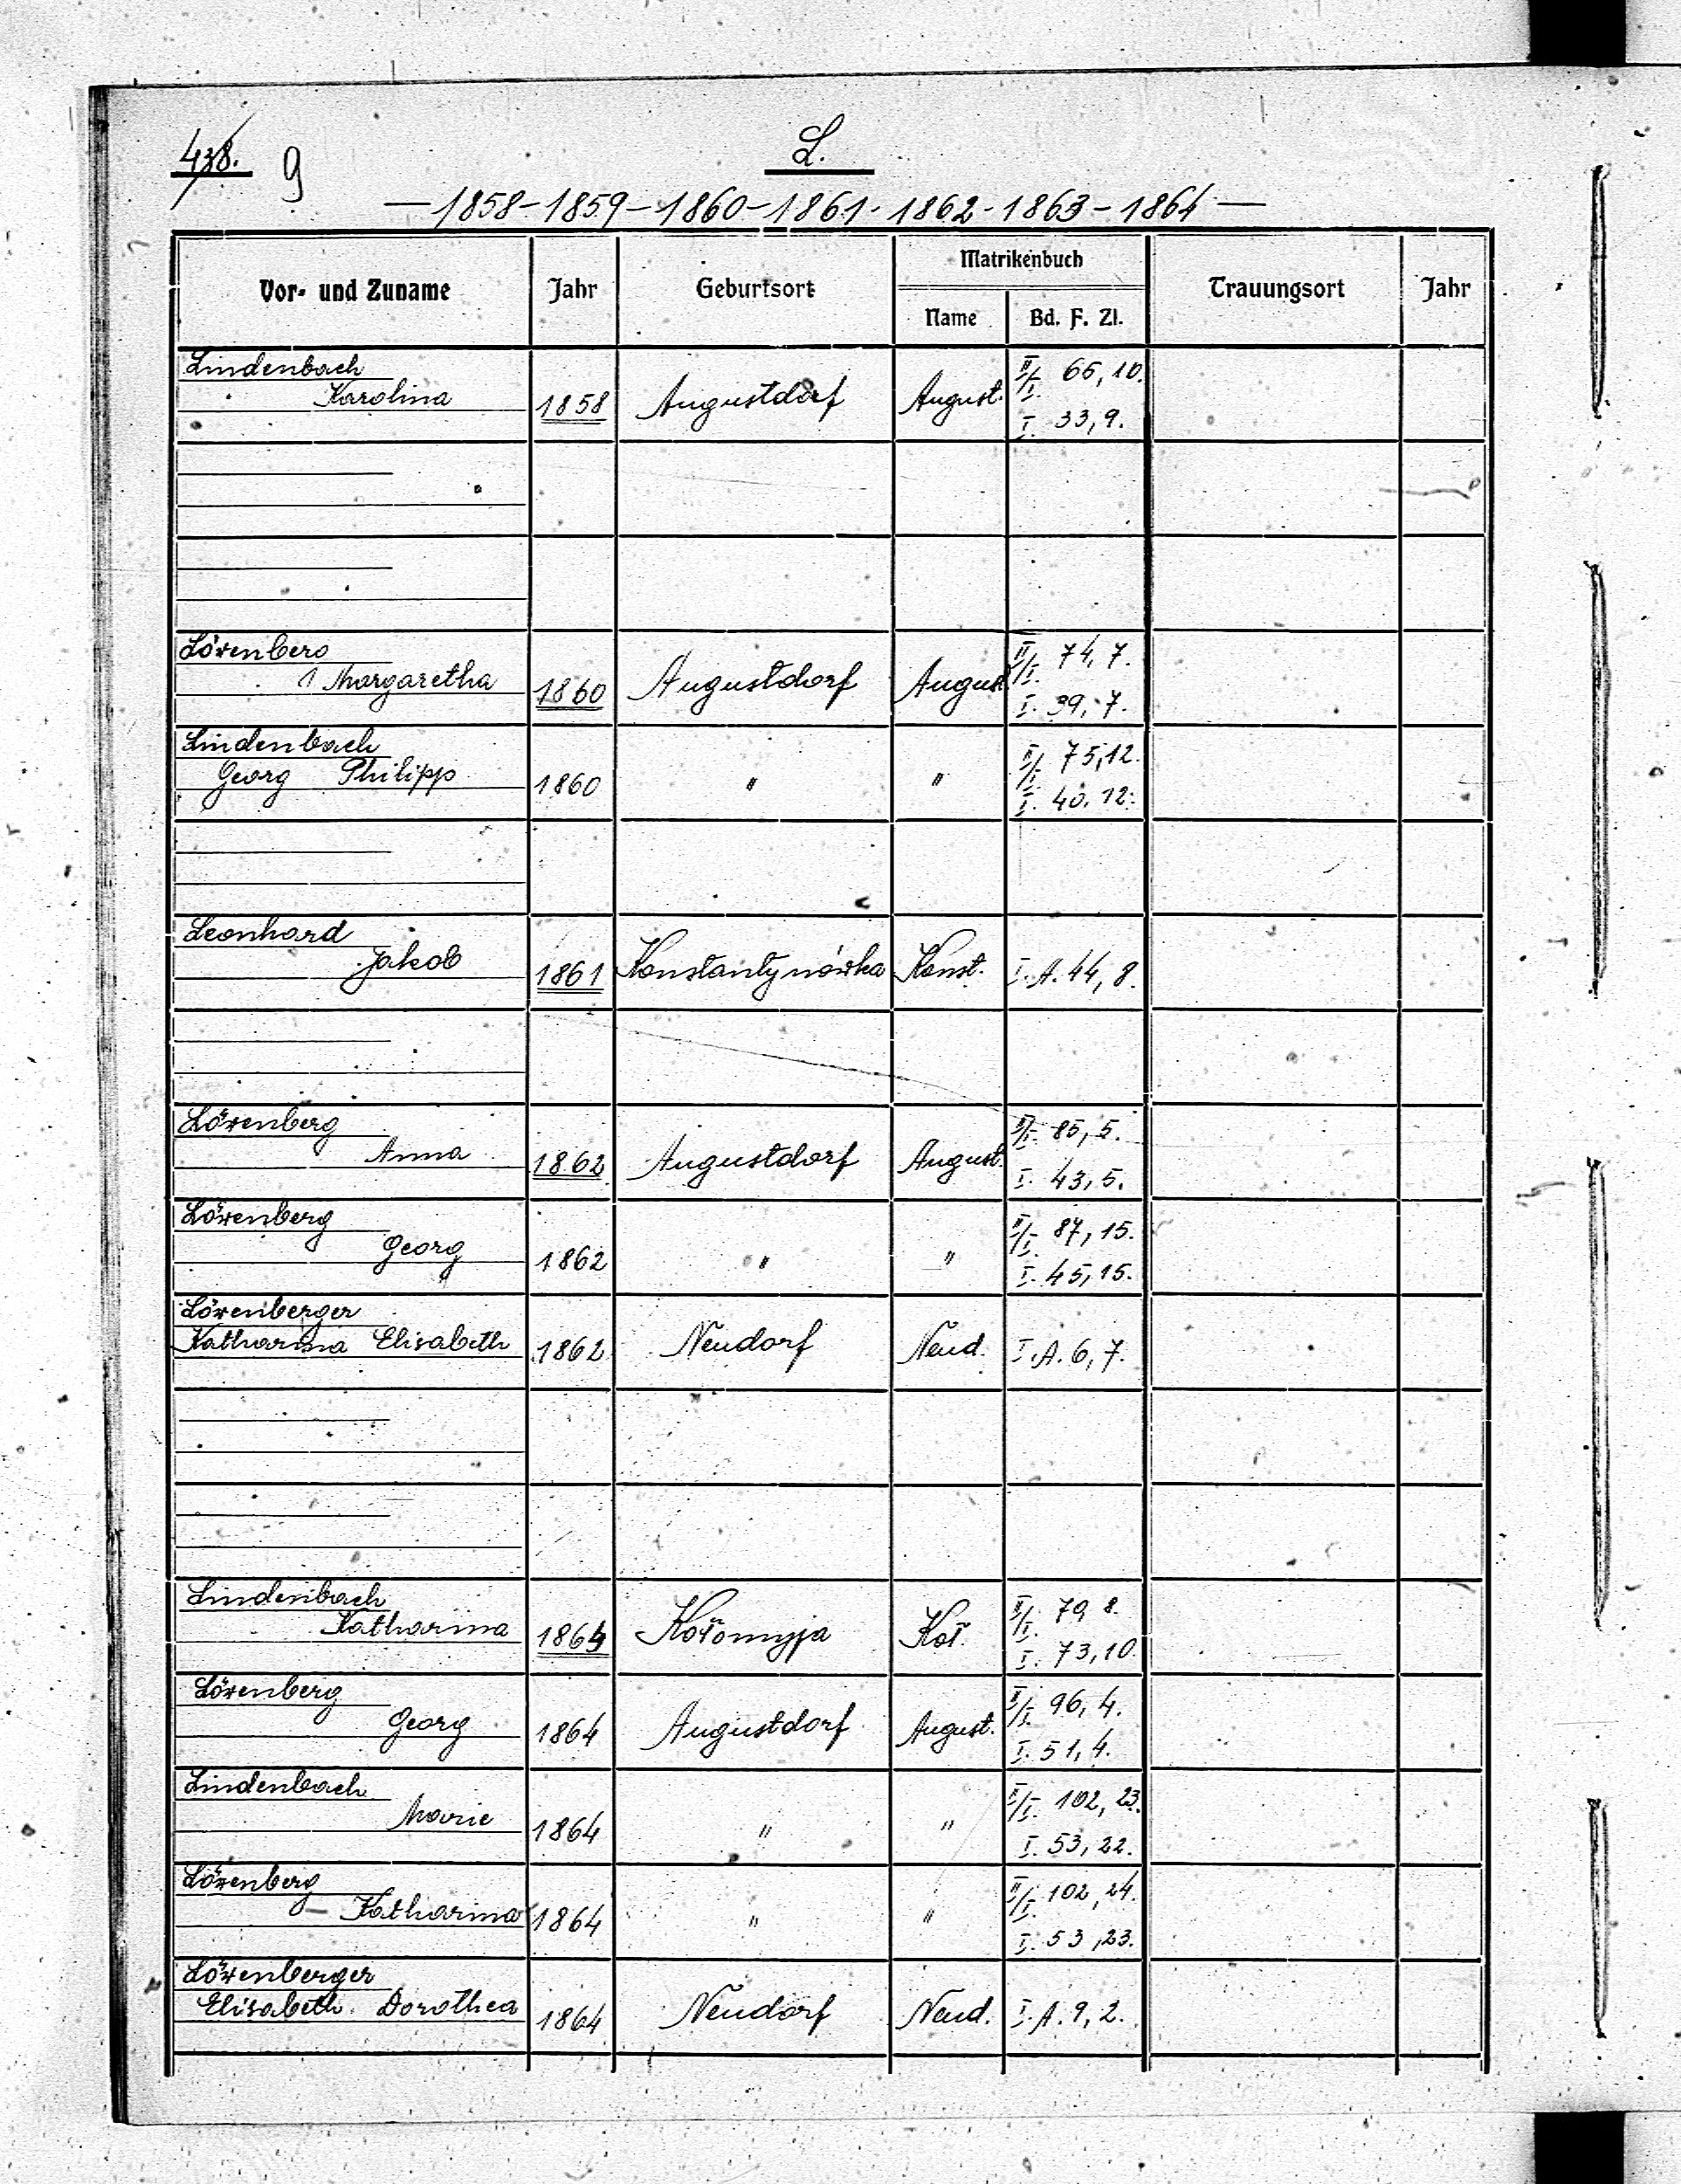 438. 9
L.
— 1858 - 1859 - 1860 - 1861 - 1862 - 1863 - 1864 —
Vor- und Zuname Jahr Geburtsort Matrikenbuch Trauungsort Jahr
Name Bd. F. Zl.
Lindenbach II/I. 66, 10.
Karolina 1858 Augustdorf August.
I. 33, 9.
Löwenberg II/I. 74, 7.
Margaretha 1860 Augustdorf August
I. 39, 7.
Lindenbach II/I. 75, 12.
Georg Philipp 1860 " "
I. 40. 12.
Leonhard
Jakob 1861 Konstantynówka Konst. I. A. 44, 8.
Löwenberg II/I. 85, 5.
Anna 1862 Augustdorf August.
I. 43, 5.
Löwenberg II/I. 87, 15.
Georg 1862 " "
I. 45, 15.
Löwenberger
Katharina Elisabeth 1862 Neudorf Neud. I. A. 6, 7.
Lindenbach II/I. 79, 8.
Katharina 1864 Kołomyja Koł.
I. 73, 10.
Löwenberg II/I. 96, 4.
Georg 1864 Augustdorf August.
I. 51, 4.
Lindenbach II/I. 102, 23.
Marie 1864 " "
I. 53, 22.
Löwenberg II/I. 102, 24.
— Katharina 1864 " "
I. 53, 23.
Löwenberger
Elisabeth Dorothea 1864 Neudorf Neud. I. A. 9, 2.